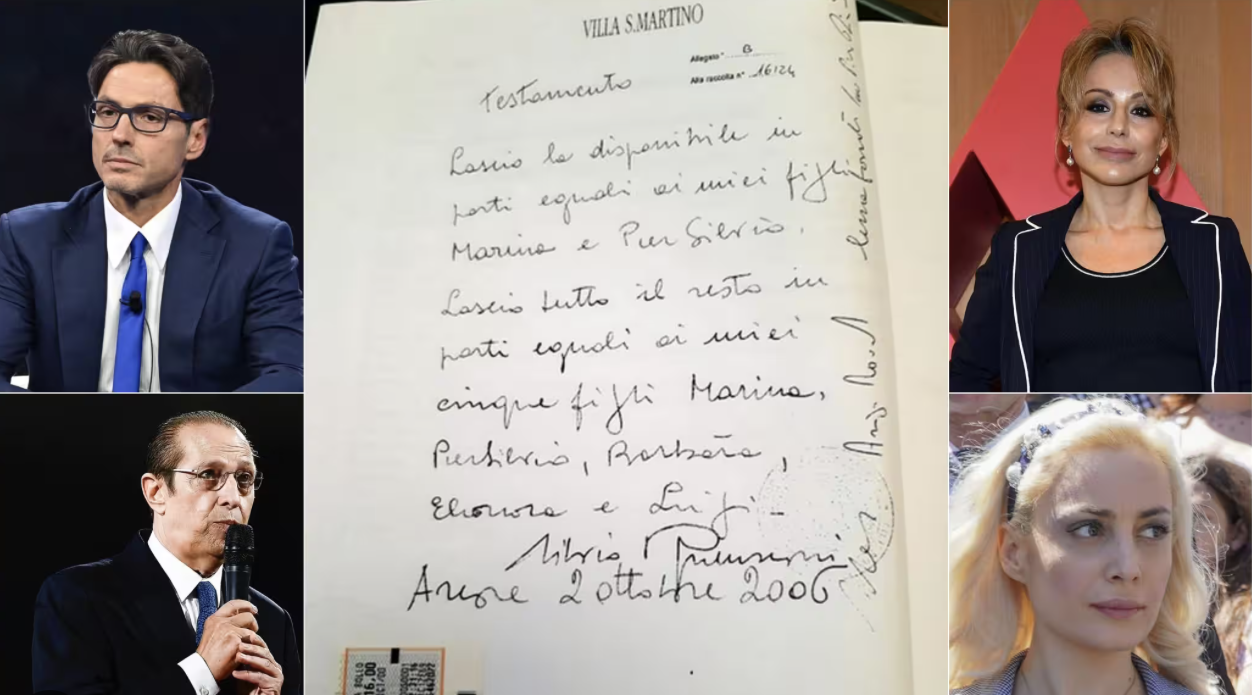 VILLA S.MARTINO
Allegato " B
Alla raccolta n° 16124
Testamento
Lascio la disponibile in
parti eguali ai miei figli
Marina e Pier Silvio.
Lascio tutto il resto in
parti eguali ai miei
cinque figli Marina,
PierSilvio, Barbara,
Eleonora e Luigi.
Silvio Berlusconi
Arcore 2 ottobre 2006
16,00